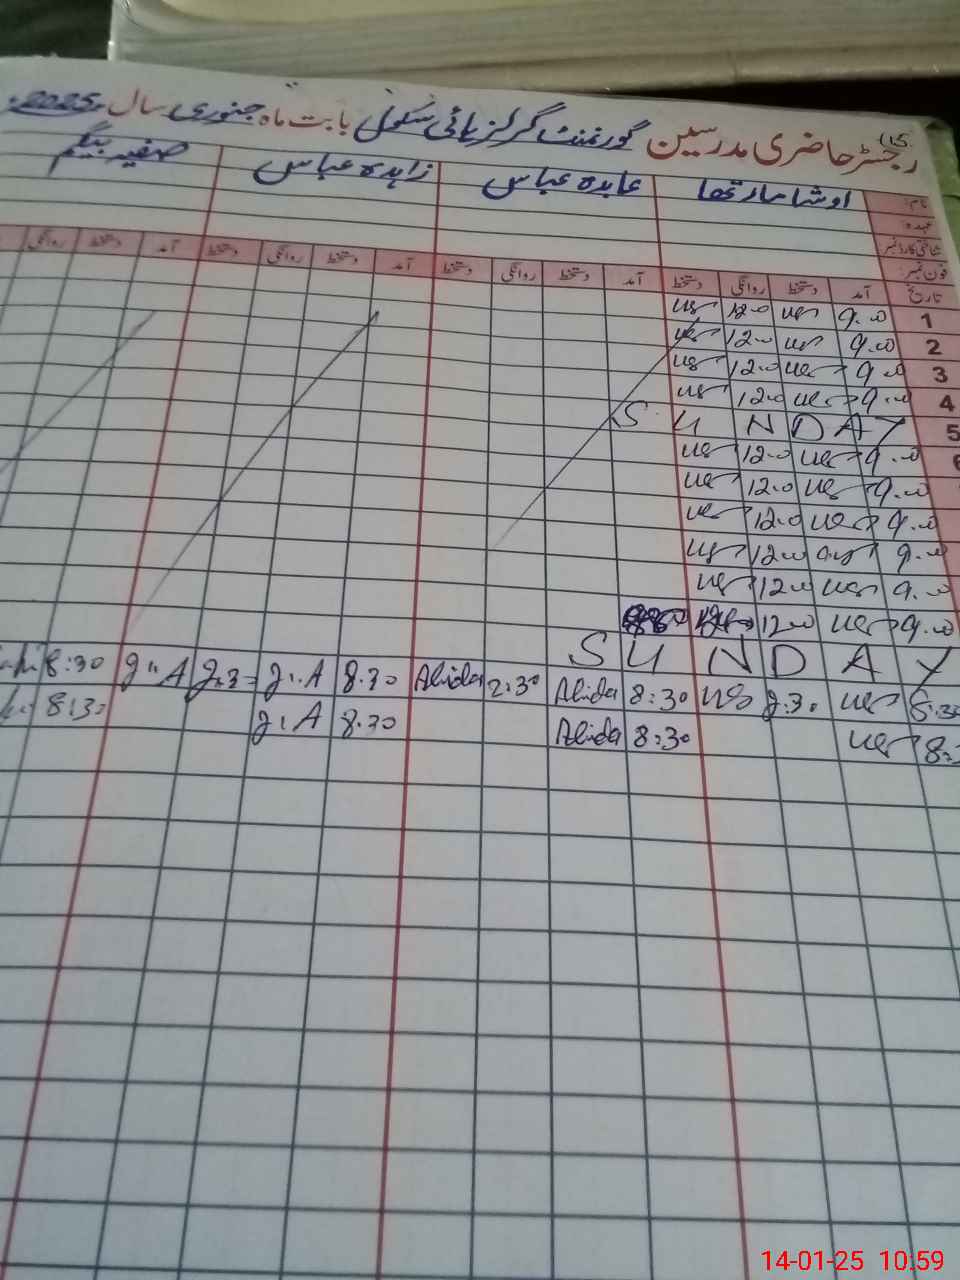 (15)
رجسٹر حاضری مدرسین گورنمنٹ گرلز ہائی سکول بابت ماہ جنوری سال 2025
نام: اوشا مارتھا عابدہ عباس زاہدہ عباس صفیہ بیگم
عہدہ:
شناختی کارڈ نمبر:
فون نمبر:
تاریخ آمد دستخط روانگی دستخط آمد دستخط روانگی دستخط آمد دستخط روانگی دستخط آمد دستخط روانگی
1 9.00 12.0
2 9.00 12.0
3 9.00 12.0
4 9.00 12.0
5 SUNDAY
6 9.00 12.0
9.00 12.0
9.00 12.0
9.00 12.0
9.00 12.0
9.00 12.0
SUNDAY
8:30 2:30 8:30 Abida 2:30 Abida 8.30 J.A 2.3 J.A 8:30
8:3 8:30 Abida 8.30 J.A 8:30
14-01-25 10:59